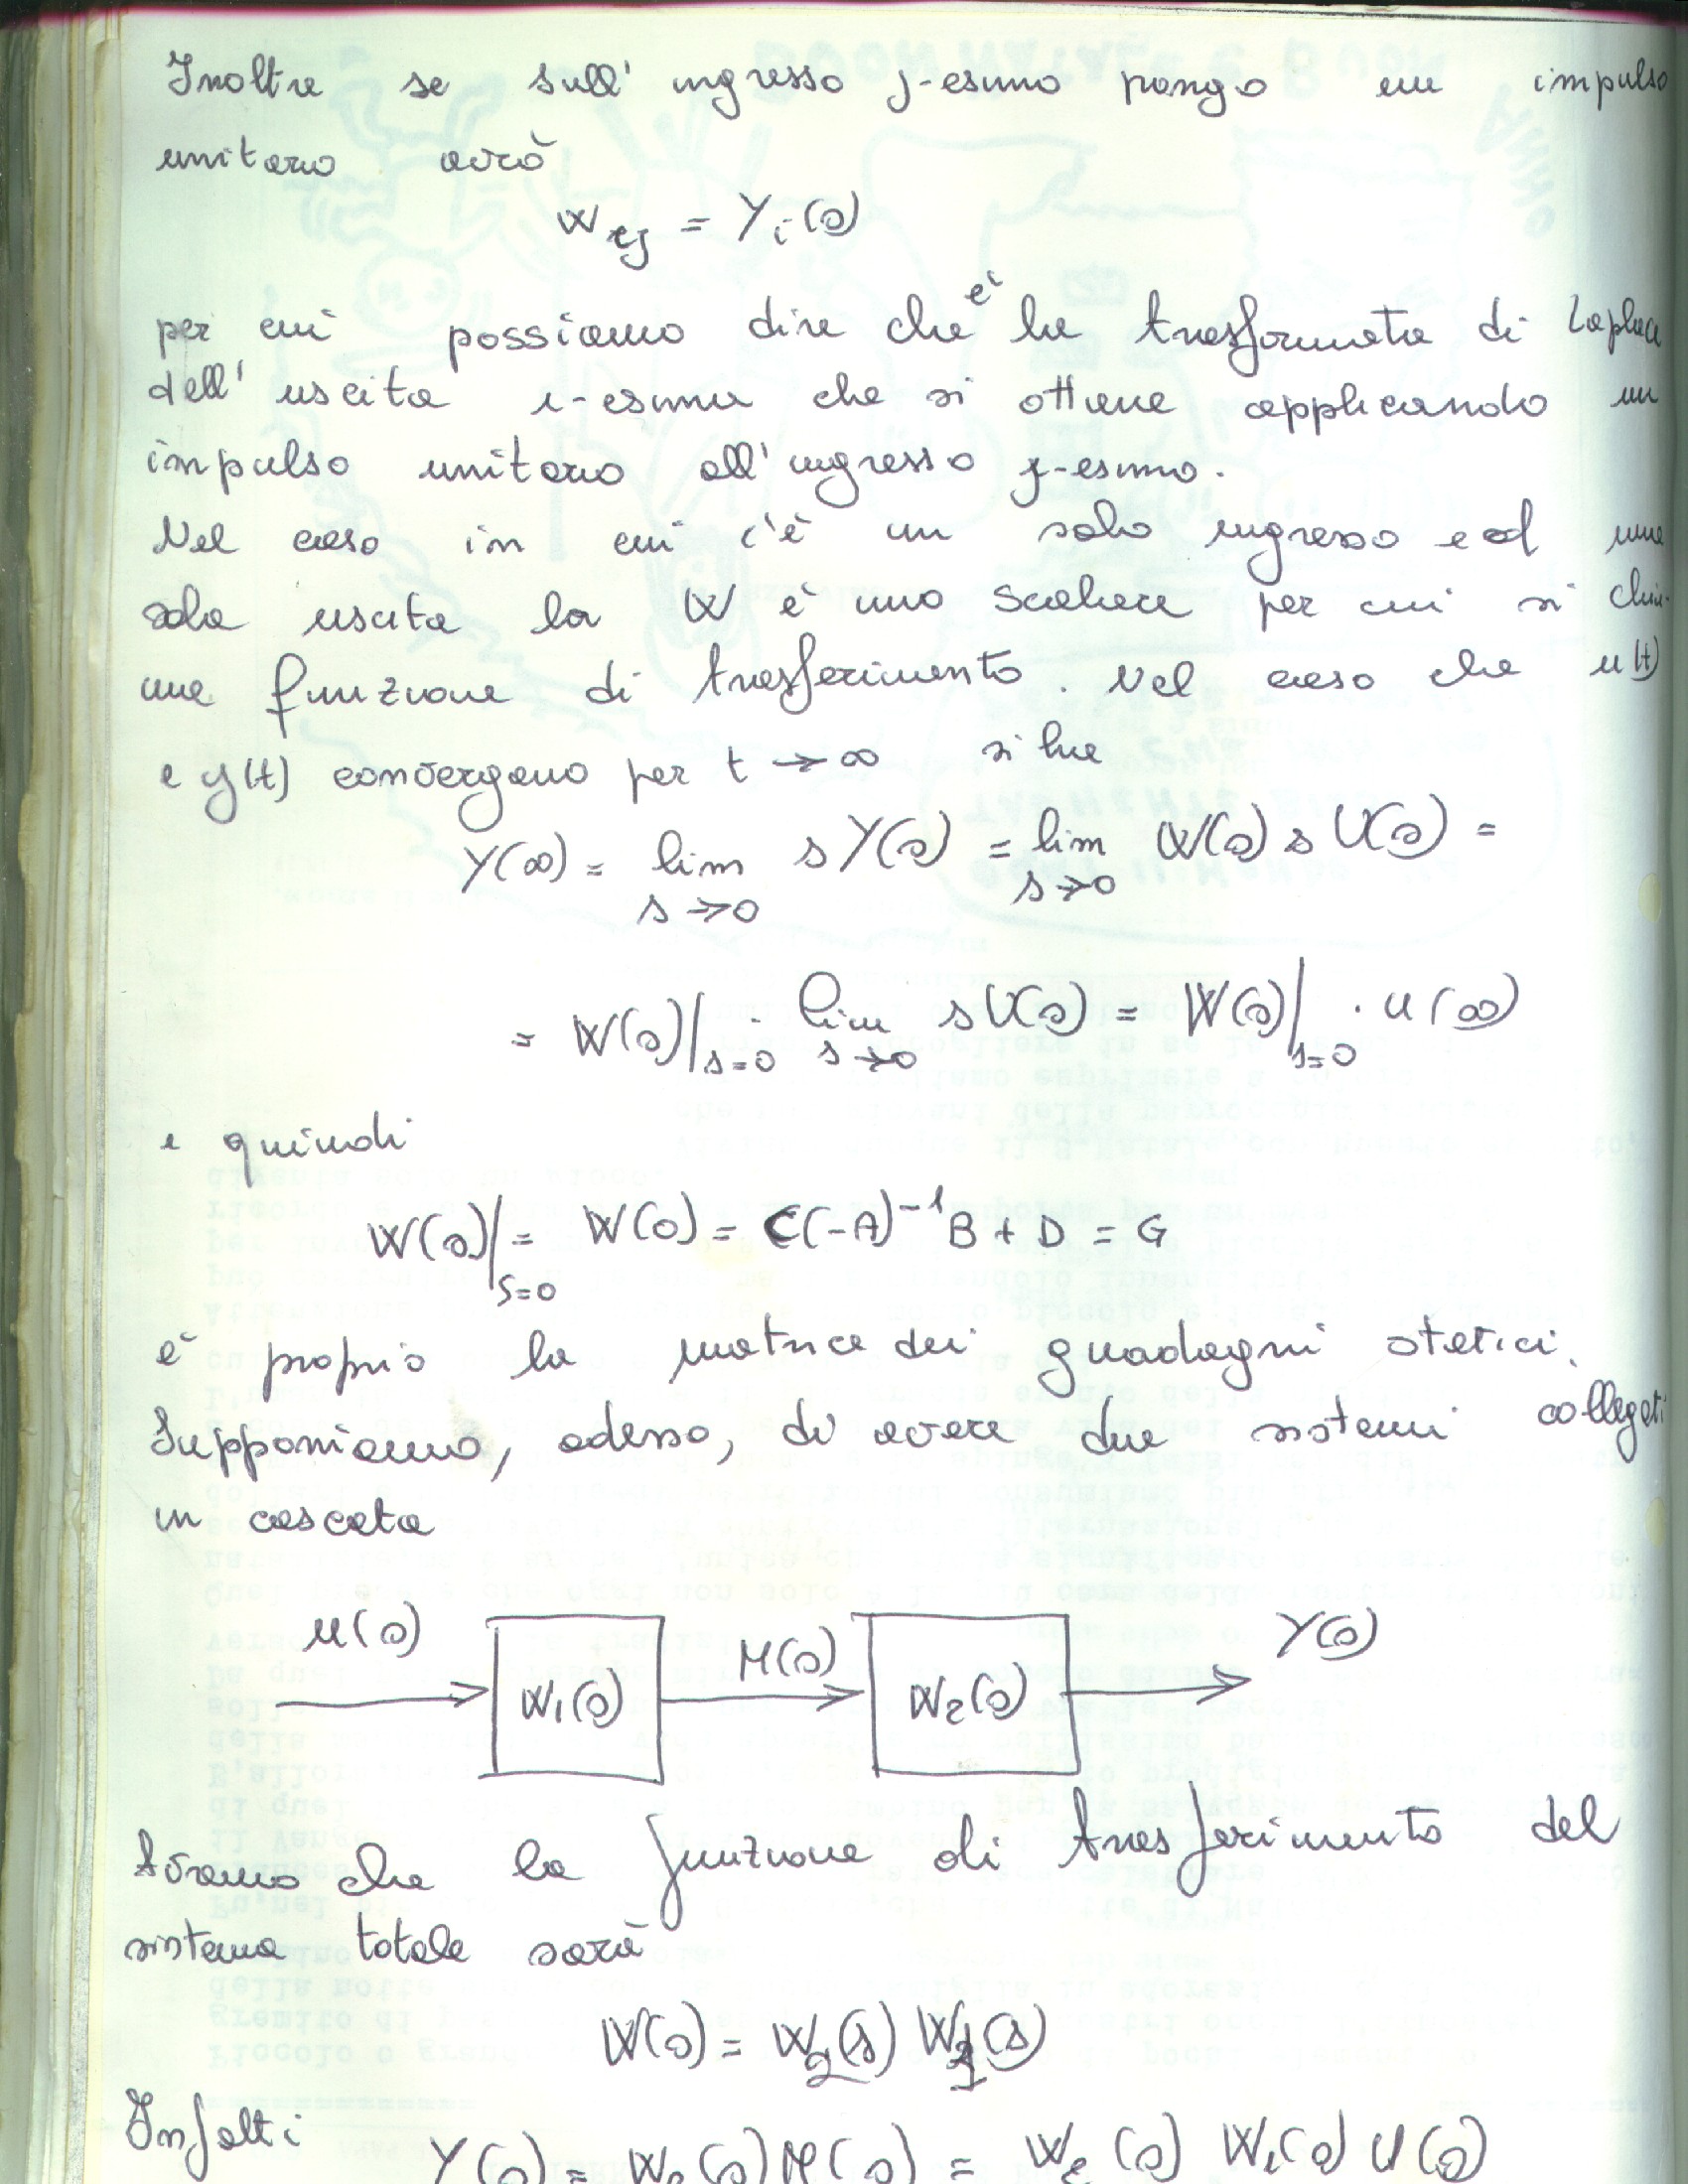 Inoltre se sull' ingresso j-esimo pongo un impulso
unitario avrò
W_ij = Y_i(s)
per cui possiamo dire che è la trasformata di Laplace
dell' uscita i-esima che si ottiene applicando un
impulso unitario all'ingresso j-esimo.
Nel caso in cui c'è un solo ingresso ed una
sola uscita la W è uno scalare per cui si chia-
ma funzione di trasferimento. Nel caso che u(t)
e y(t) convergano per t → ∞ si ha
Y(∞) = lim_{s→0} s Y(s) = lim_{s→0} W(s) s U(s) =
= W(s)|_{s=0} · lim_{s→0} s U(s) = W(s)|_{s=0} · u(∞)
e quindi
W(s)|_{s=0} = W(0) = C(-A)^{-1} B + D = G
è proprio la matrice dei guadagni statici.
Supponiamo, adesso, di avere due sistemi collegati
in cascata
U(s) W_1(s) M(s) W_2(s) Y(s)
Avremo che la funzione di trasferimento del
sistema totale sarà
W(s) = W_2(s) W_1(s)
Infatti Y(s) = W_2(s) M(s) = W_2(s) W_1(s) U(s)